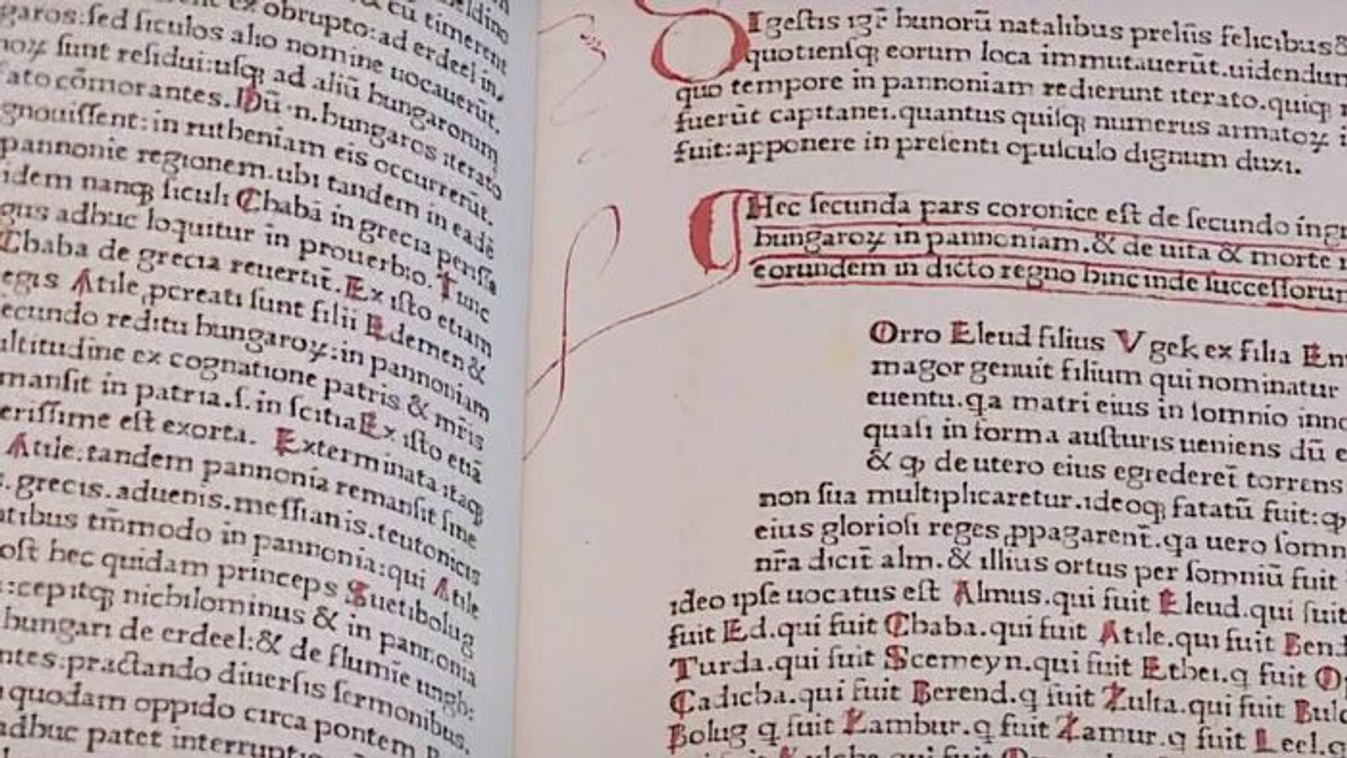 timerent
ex obrupto:ad erdeel in,
garos:sed siculos alio nomine uocauerūt.
sunt residui:usqꝫ ad aliū bungarorum
ato cōmorantes.Dū .n.bungaros iterato
gnouissent:in rutbeniam eis occurrerūt.
pannonie regionem.ubi tandem in eadē
idem nanqꝫ siculi Chabā in grecia perisse
gus adbuc loquitur in prouerbio.Tunc
Chaba de grecia reuertit̄.Ex isto etiam
egis Atile ꝓcreati sunt filii Edemen &
ecundo reditu bungaroꝝ:in pannoniam
ultitudine ex cognatione patris & mr̄is
mansit in patria.s.in scitia Ex isto etiā
erissime est exorta. Exterminata itaqꝫ
Atile:tandem pannonia remansit sine
.grecis.aduenis.messianis.teutonicis
tibus tm̄modo in pannonia:qui Atile
ost bec quidam princeps Suetibolug
:cepitqꝫ nicbilominus & in pannonia
bungari de erdeel:& de flumīe ungb:
ntes:practando diuersis sermonibus.
quodam oppido circa pontem
adbuc patet
SI gestis igr̄ bunorū natalibus preliis felicibus&
quotiensqꝫ eorum loca immutauerūt.uidendum
quo tempore in pannoniam redierunt iterato.quiqꝫ
fuerūt capitanei.quantus quisqꝫ numerus armatoꝝ
fuit:apponere in presenti opusculo dignum duxi.
Hec secunda pars coronice est de secundo ingr
bungaroꝝ in pannoniam.& de uita & morte
eorundem in dicto regno binc inde successorum
Orro Eleud filius Vgek ex filia En
magor genuit filium qui nominatur
euentu.qa matri eius in somnio inno
quasi in forma austuris ueniens dū e
& ꝙ de utero eius egrederet̄ torrens
non sua multiplicaretur.ideoqꝫ fatatū fuit:ꝙ
eius gloriosi reges ꝓpagarent̄.qa uero somn
nr̄a dicit̄ alm.& illius ortus per somniū fuit
ideo ipse uocatus est Almus.qui fuit Eleud.qui fuit
fuit Ed.qui fuit Chaba.qui fuit Atile.qui fuit Bend
Turda.qui fuit Scemeyn.qui fuit Etbei.q fuit O
Cadicba.qui fuit Berend.q fuit Zulta.qui fuit Bulc
Bolug q fuit Zambur.q fuit Zamur.q fuit Leel.q